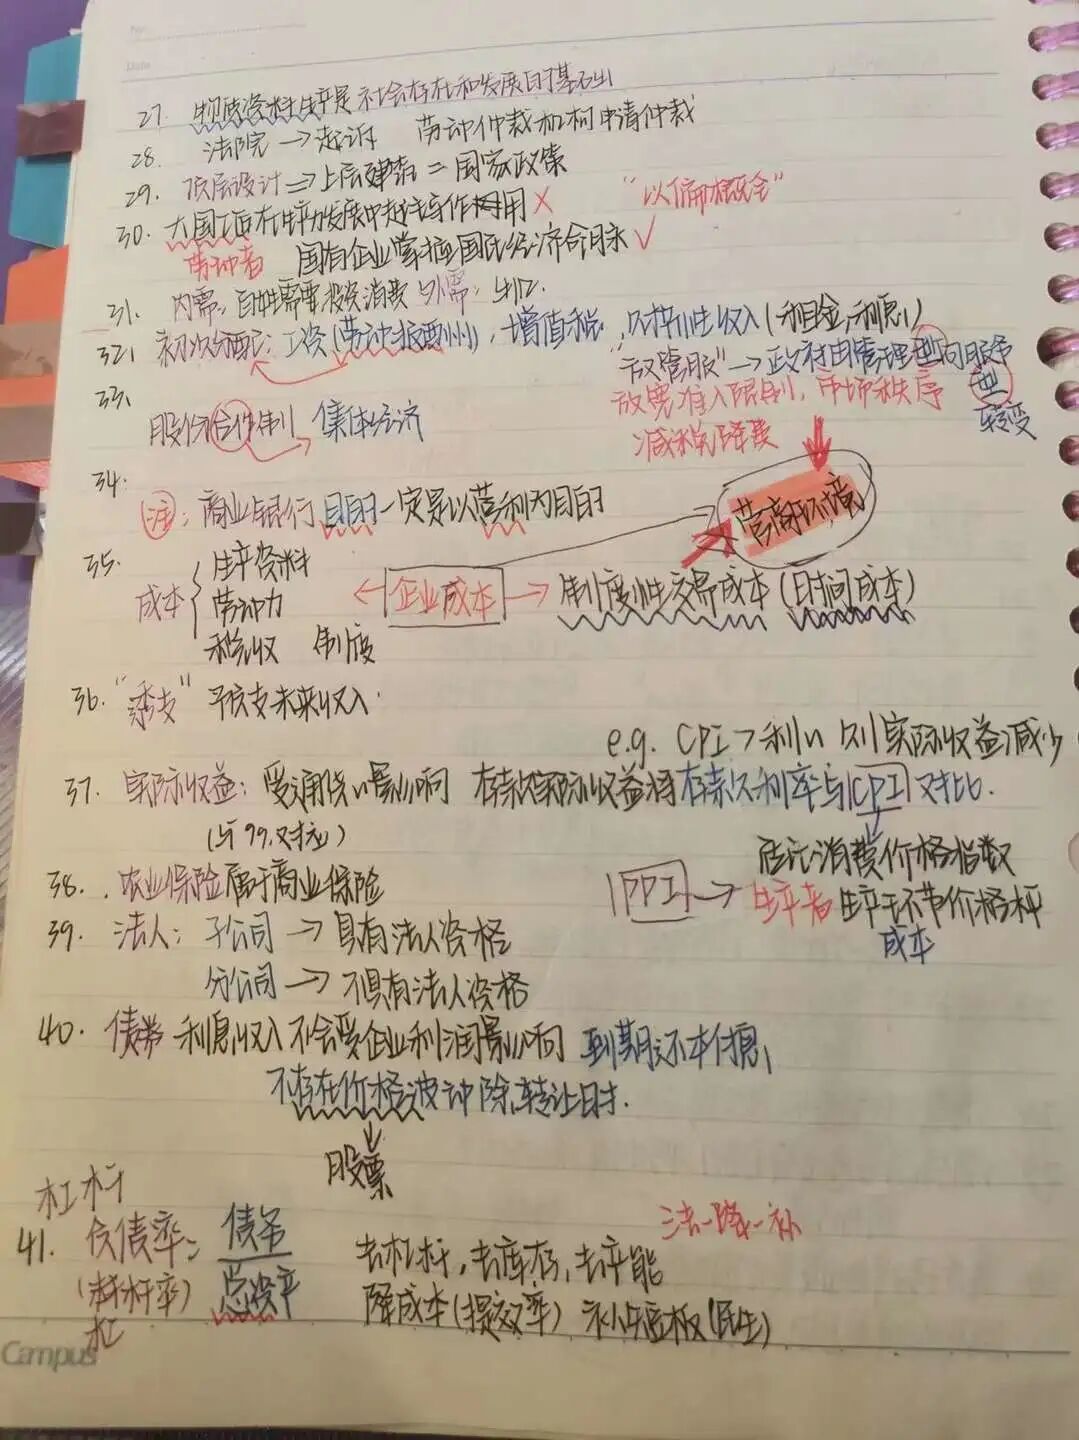 No.
Date
27. 物质资料生产是社会存在和发展的基石出
28. 法院→起诉 劳动仲裁机构申请仲裁
29. 顶层设计⇒上层建筑=国家政策
30. 大国工匠在生产力发展中起主导作用 × "以偏概全"
劳动者 国有企业掌握国民经济命脉 √
31. 内需:百姓需要投资消费 外需:出口.
32. 初次分配:工资(劳动报酬),增值税,财产性收入(租金,利息)
33. "放管服"→政府由管理型向服务型转变
放宽准入限制,市场秩序
股份合作制 集体经济
减税降费
34. 注:商业银行目的一定是以营利为目的
营商环境
35. 成本{生产资料
劳动力
税收 制度
←企业成本→制度性交易成本(时间成本)
36. "透支"预支未来收入.
e.g. CPI>利 则实际收益减少
37. 实际收益:受通货影响 存款实际收益将存款利率与CPI对比.
(与99.对应)
居民消费价格指数
38. 农业保险属于商业保险
PPI→生产者生产环节价格
成本
39. 法人:子公司→具有法人资格
分公司→不具有法人资格
40. 债券利息收入不会受企业利润影响 到期还本付息,
不存在价格波动除转让时.
↓
股票
杠杆
三去一降一补
41. 负债率=债务/总资产 去杠杆,去库存,去产能
(杠杆率) 降成本(提效率) 补短板(民生)
杠
Campus